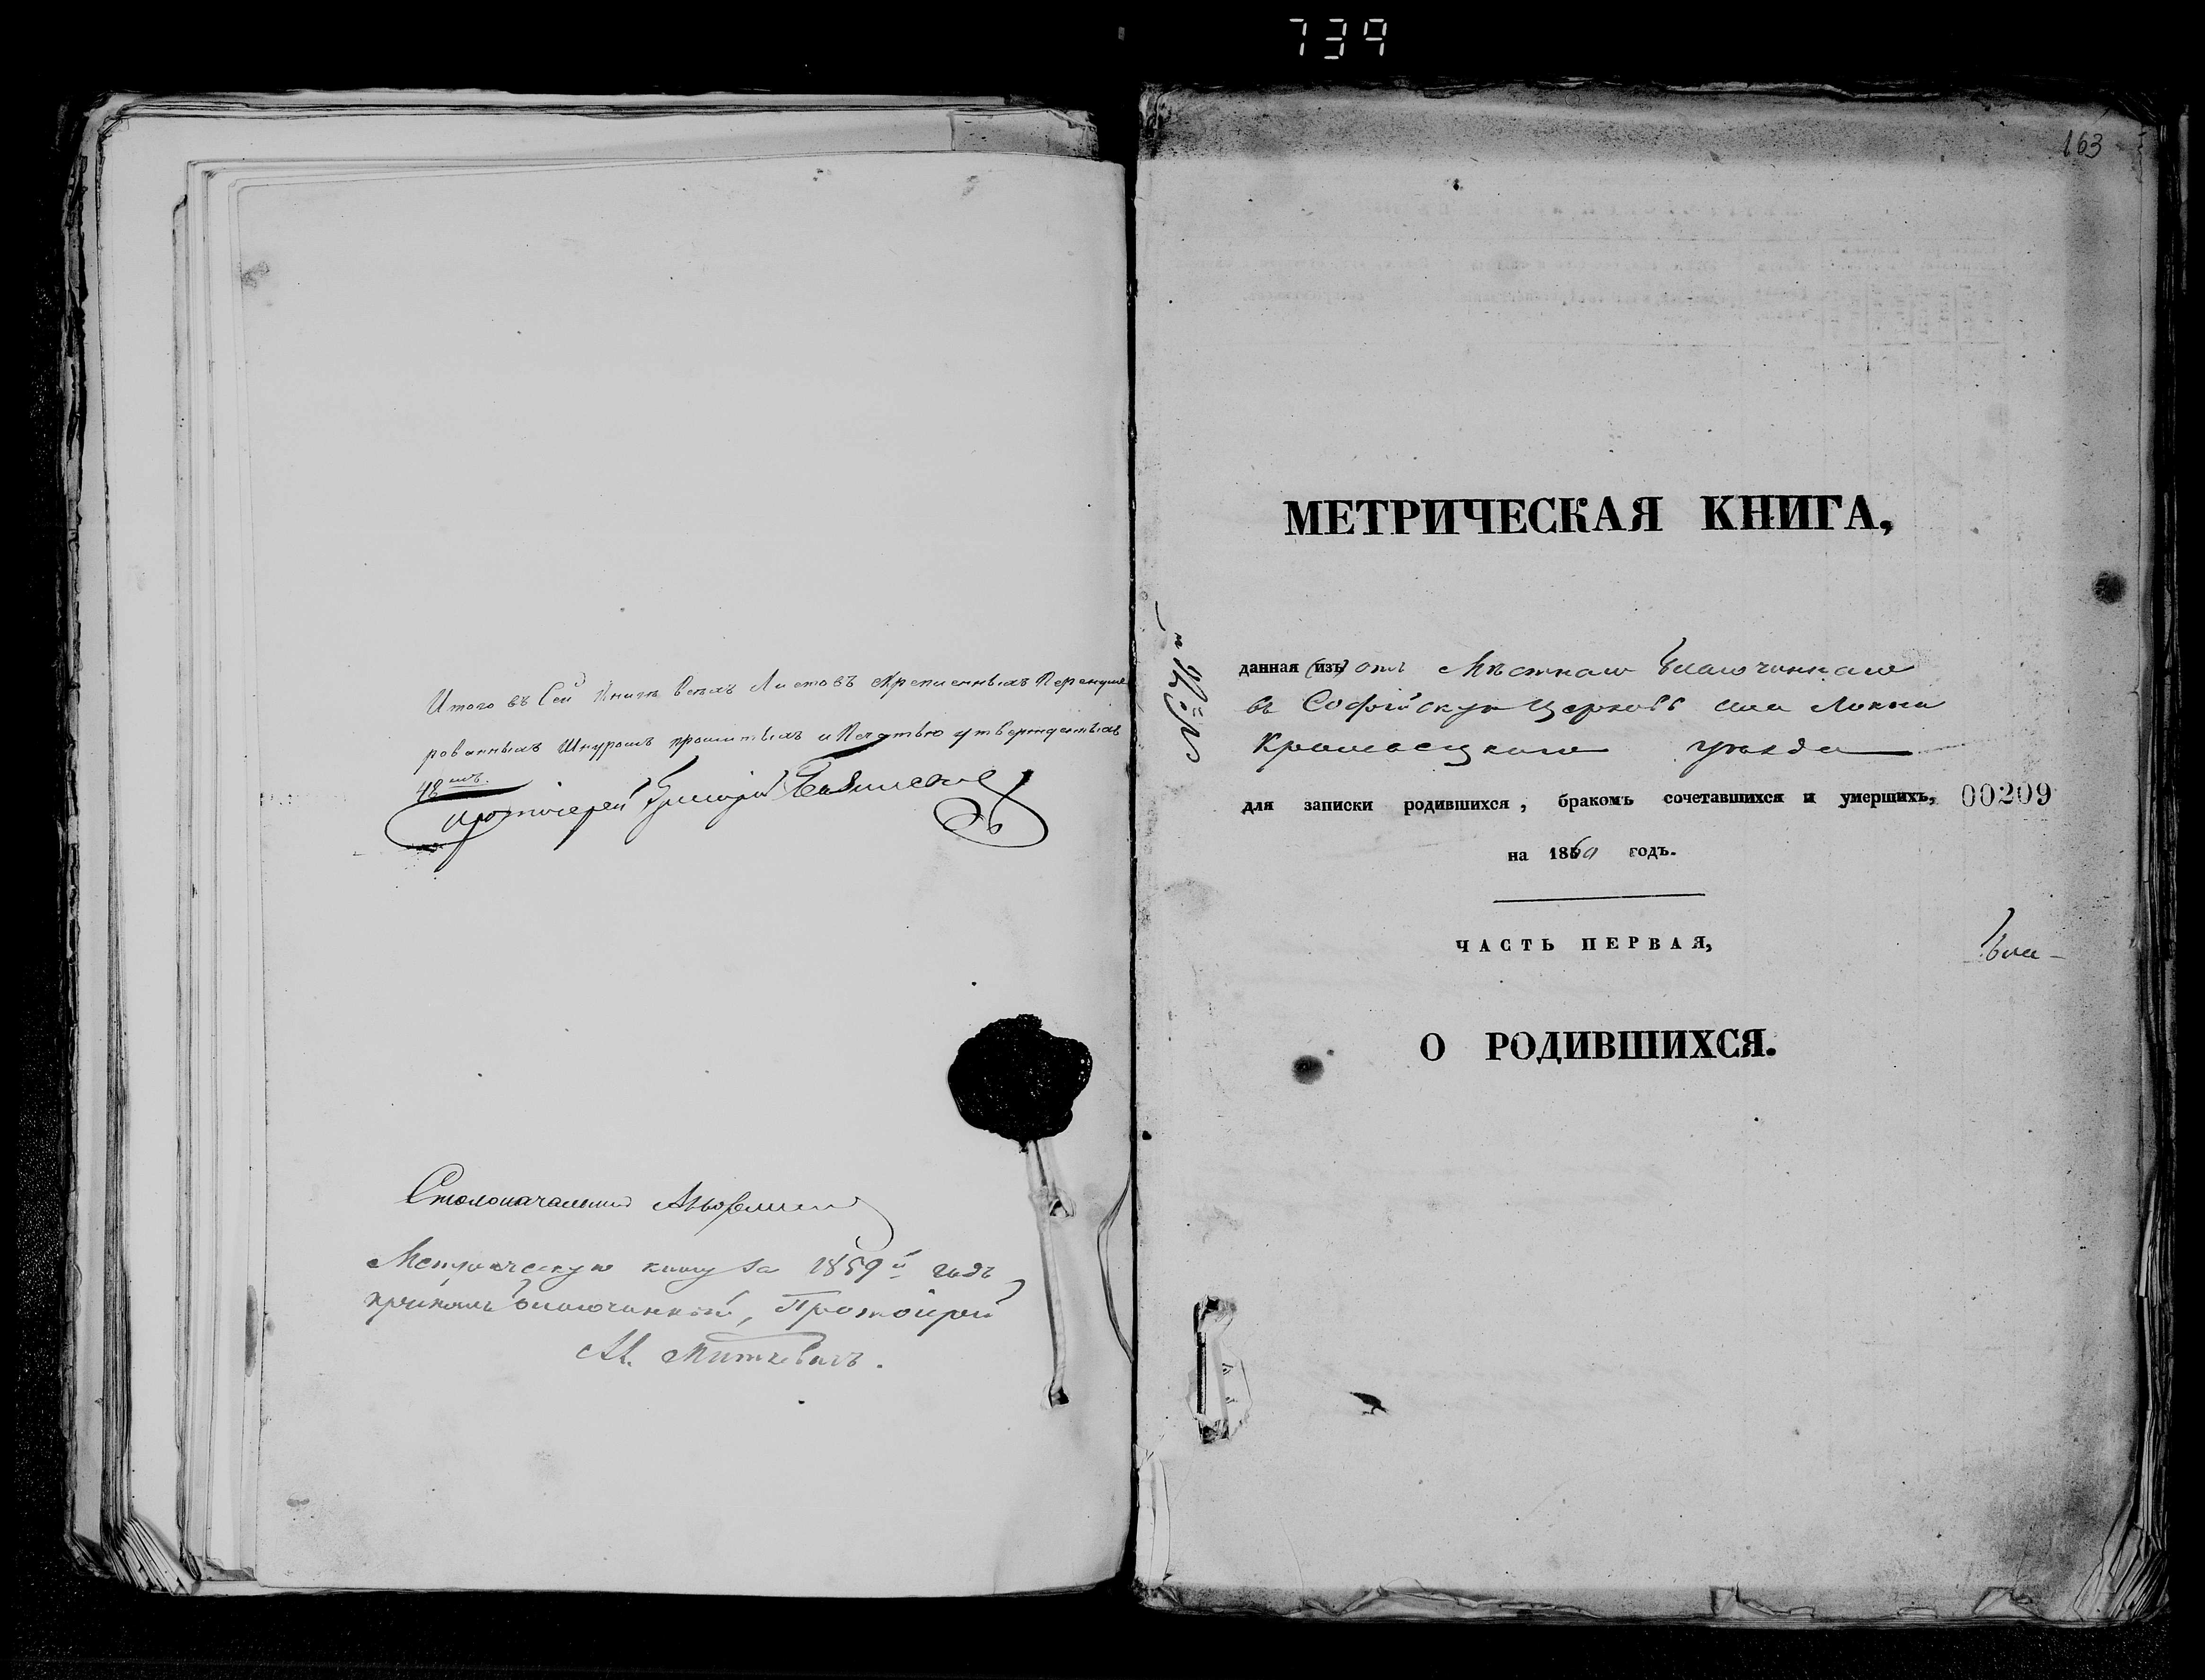 739
Итого въ Сей Книгѣ всѣхъ Листовъ скрепленныхъ Перенуме
рованныхъ Шнуромъ прошитыхъ и Печатью утвержденныхъ
48
Протоіерей Григорій
Столоначальникъ
Метрическую книгу за 1859й годъ
принялъ благочинный, Протоіерей
163
МЕТРИЧЕСКАЯ КНИГА,
данная (изъ) отъ Мѣстнаго Благочиннаго
въ Софійскую Церковь села Локни
Кролевецкаго уѣзда
для записки родившихся, бракомъ сочетавшихся и умершихъ, 00209
на 1860 годъ.
ЧАСТЬ ПЕРВАЯ,
Бла-
О РОДИВШИХСЯ.